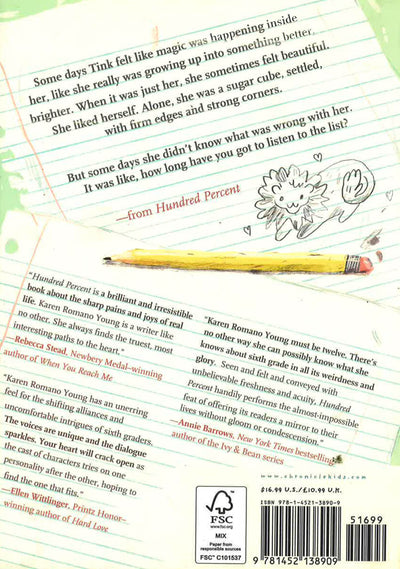 Some days Tink felt like magic was happening inside
her, like she really was growing up into something better,
brighter. When it was just her, she sometimes felt beautiful.
She liked herself. Alone, she was a sugar cube, settled,
with firm edges and strong corners.
But some days she didn't know what was wrong with her.
It was like, how long have you got to listen to the list?
—from Hundred Percent
"Hundred Percent is a brilliant and irresistible
book about the sharp pains and joys of real
life. Karen Romano Young is a writer like
no other. She always finds the truest, most
interesting paths to the heart."
—Rebecca Stead, Newbery Medal–winning
author of When You Reach Me
"Karen Romano Young has an unerring
feel for the shifting alliances and
uncomfortable intrigues of sixth graders.
The voices are unique and the dialogue
sparkles. Your heart will crack open as
the cast of characters tries on one
personality after the other, hoping to
find the one that fits."
—Ellen Wittlinger, Printz Honor–
winning author of Hard Love
"Karen Romano Young must be twelve. There's
no other way she can possibly know what she
knows about sixth grade in all its weirdness and
glory. Seen and felt and conveyed with
unbelievable freshness and acuity, Hundred
Percent handily performs the almost-impossible
feat of offering its readers a mirror to their
lives without gloom or condescension."
—Annie Barrows, New York Times bestselling
author of the Ivy & Bean series
FSC
www.fsc.org
MIX
Paper from
responsible sources
FSC™ C101537
www.chroniclekidz.com
$16.99 U.S./£10.99 U.K.
ISBN 978-1-4521-3890-9
51699
9 781452 138909